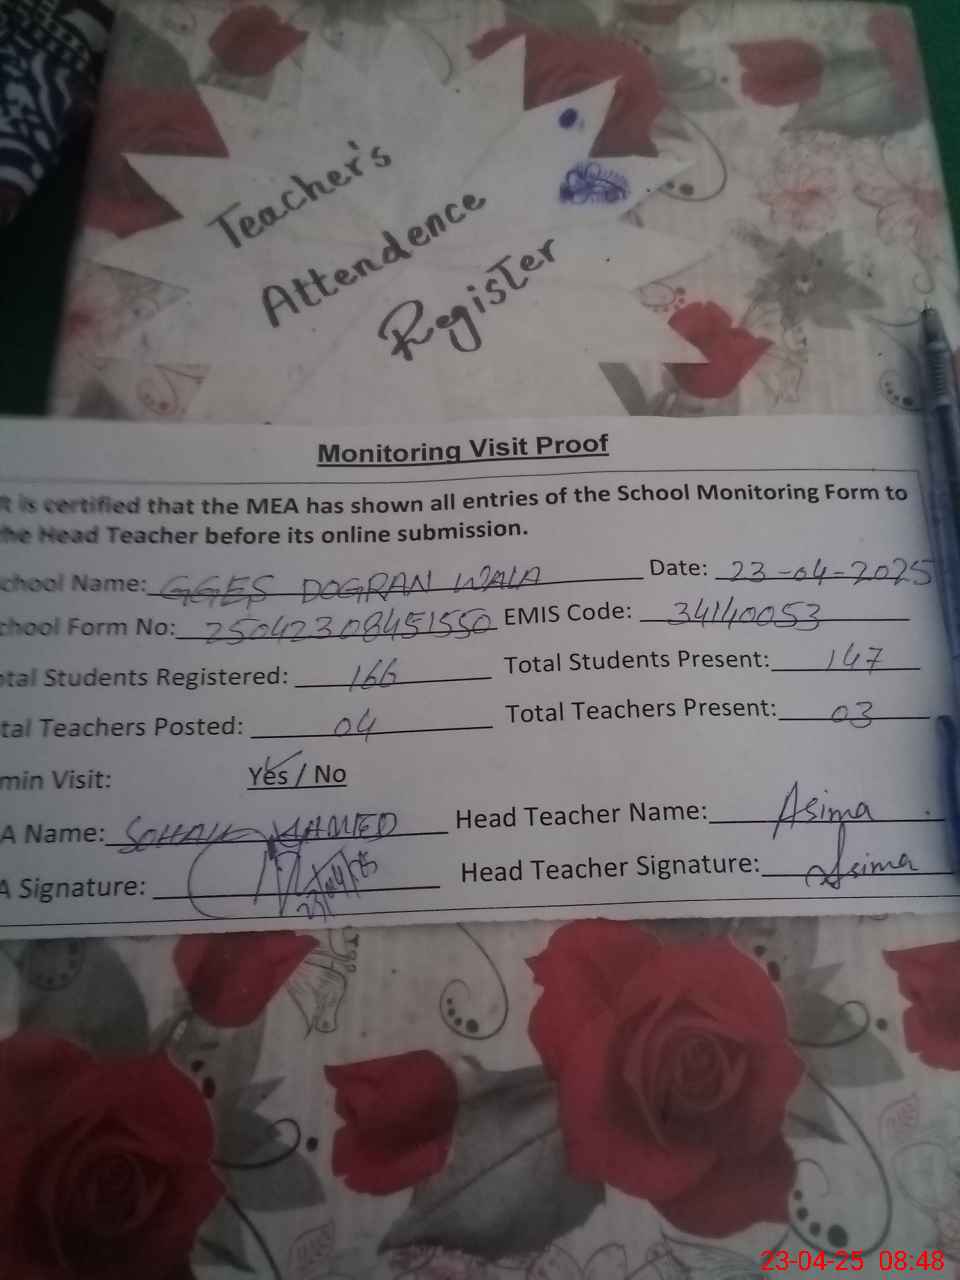 Teacher's
Attendence
Register
Monitoring Visit Proof
It is certified that the MEA has shown all entries of the School Monitoring Form to
the Head Teacher before its online submission.
chool Name: GGES DOGRAN WALA Date: 23-04-2025
chool Form No: 25042308451550 EMIS Code: 34140053
otal Students Registered: 166 Total Students Present: 147
tal Teachers Posted: 04 Total Teachers Present: 03
min Visit: Yes / No
A Name: SOHAIL AHMED Head Teacher Name: Asima
A Signature: 23/04/25 Head Teacher Signature: Asima
23-04-25 08:48